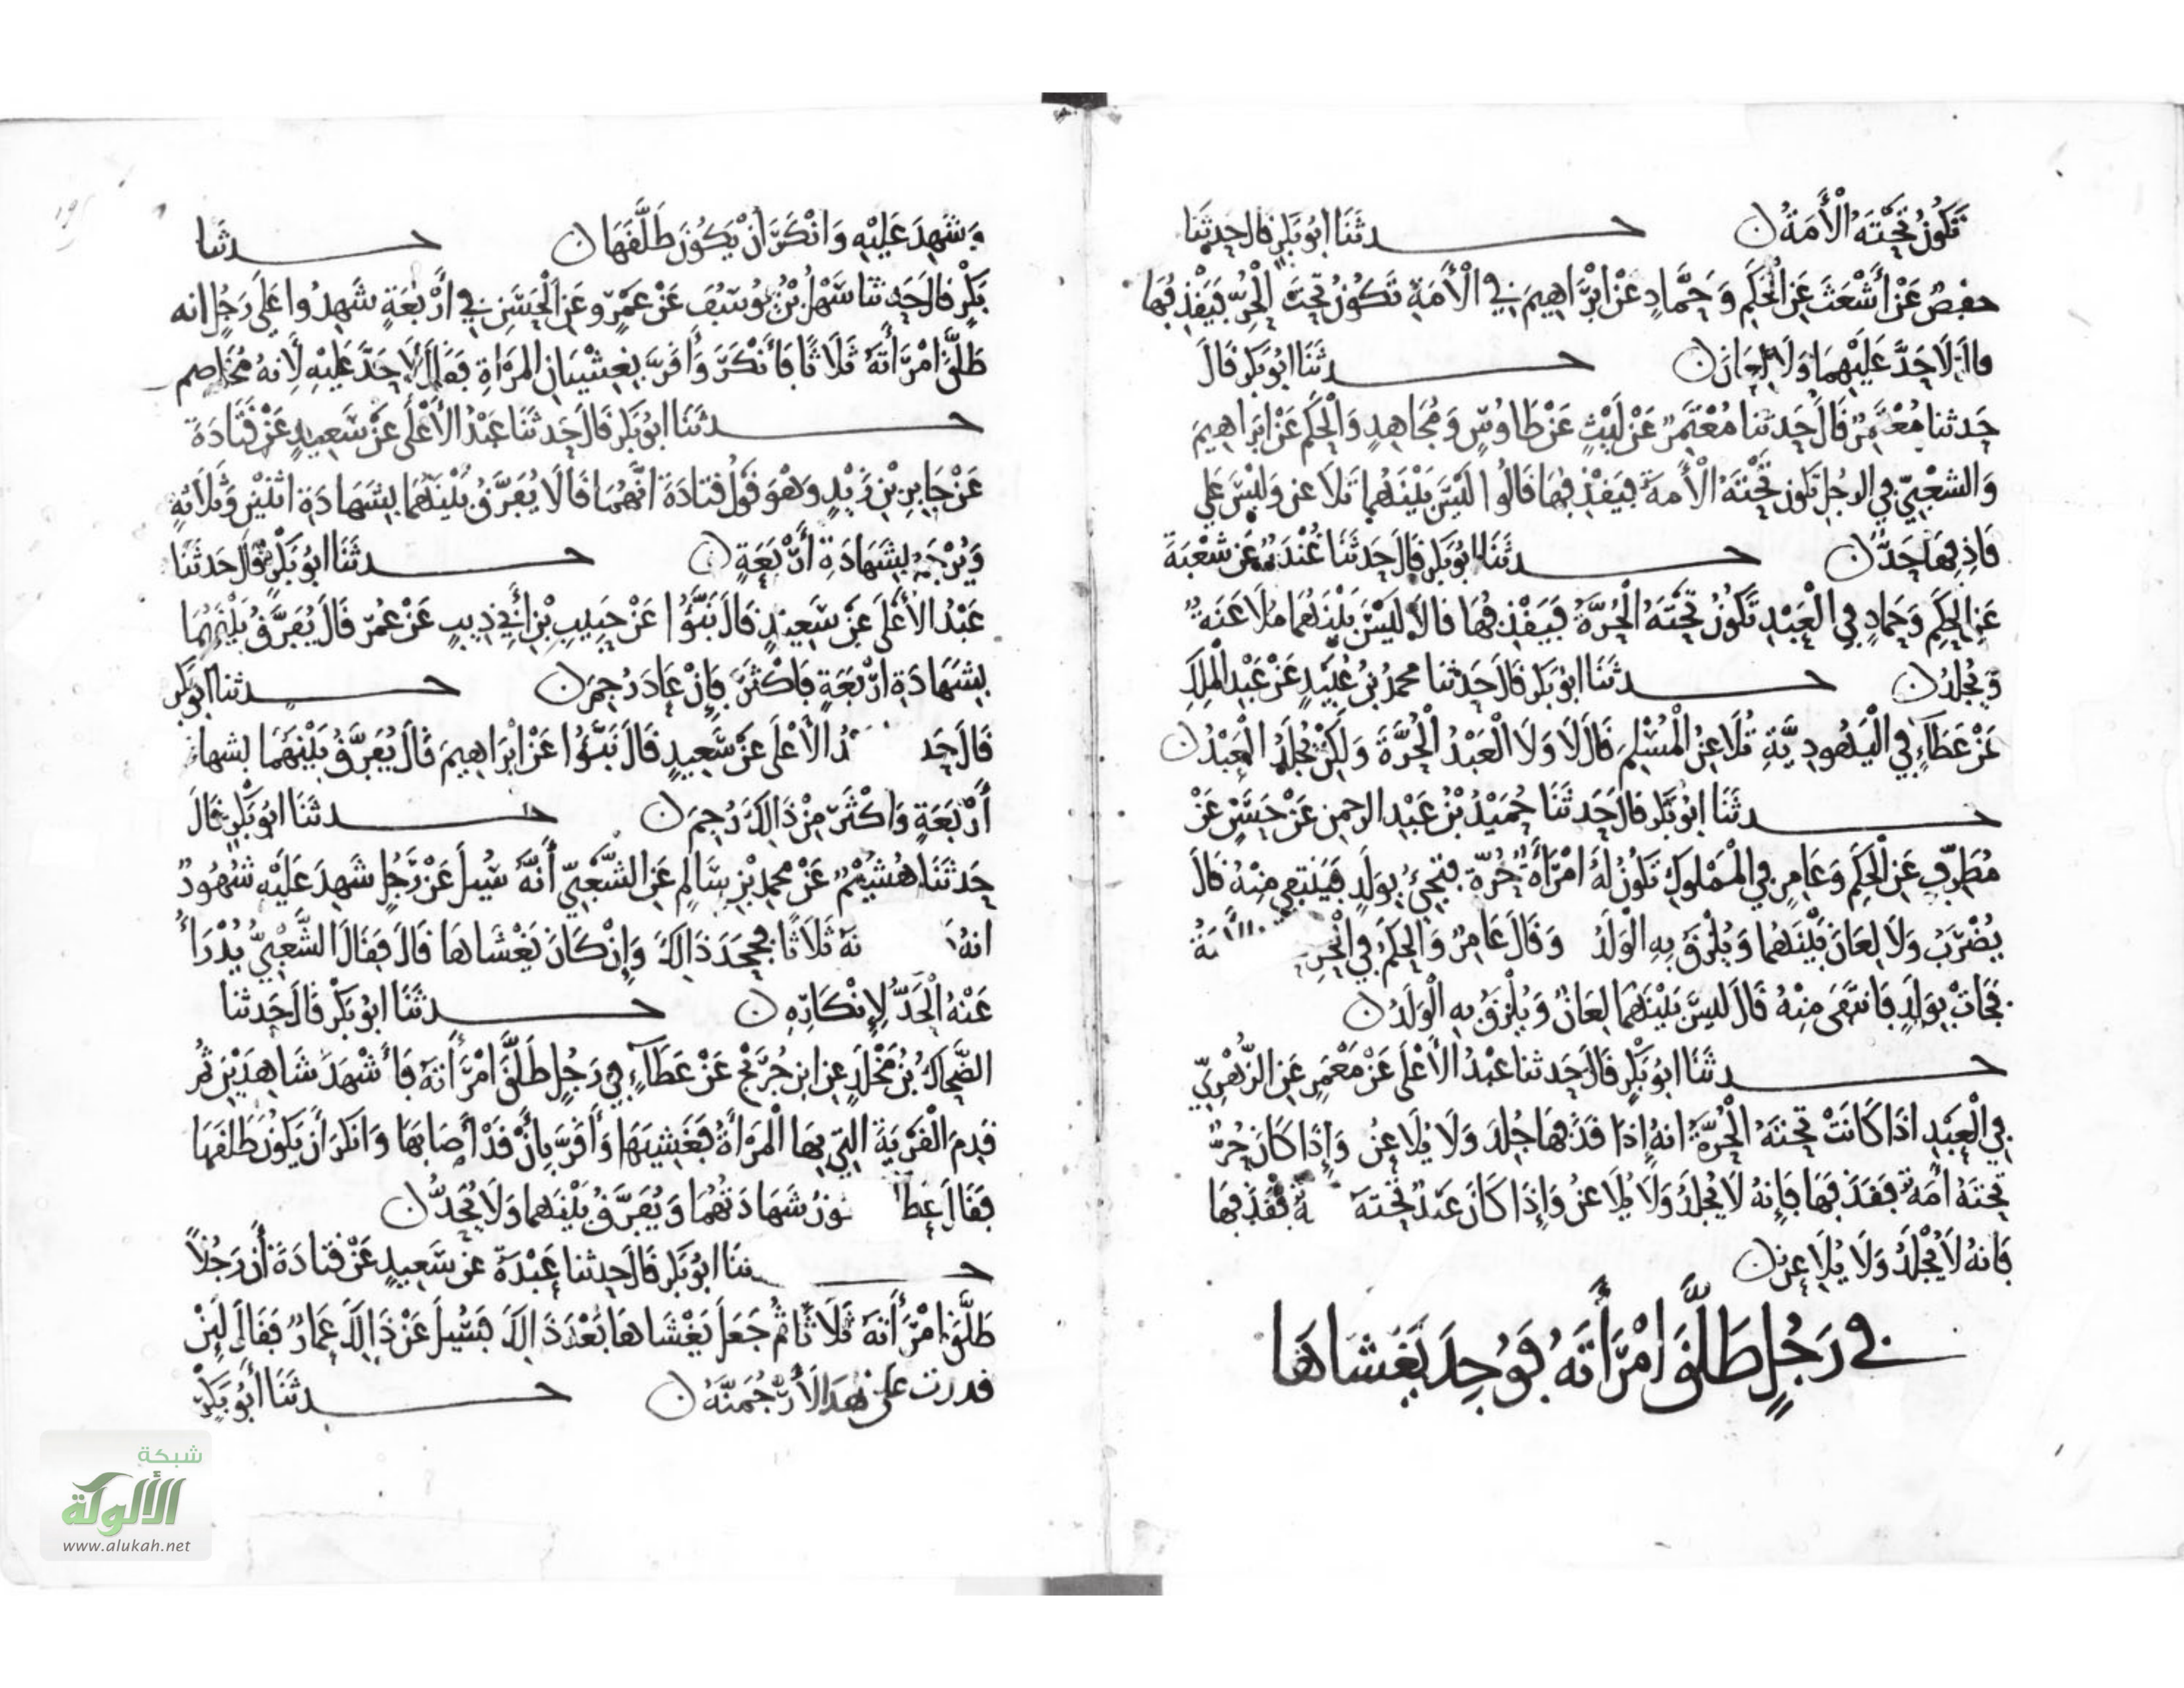 تَكُونُ تَحْتَهُ الْأَمَةُ ن حدثَنَا ابُو بَكْرٍ قالَ حَدثَنَا
حفصٌ عَنْ أَشْعَثَ عَنِ الْحَكَمِ وَحَمَّادٍ عَنْ ابْرَاهِيمَ فِي الْأَمَةِ تَكُونُ تَحْتَ الْحُرِّ فَيَقْذِفُهَا
قالَا لَا حَدَّ عَلَيْهِمَا وَلَا لِعَانَ ن حدثَنَا ابُو بَكْرٍ قَالَ
حَدثنا مُعْتَمِرٌ قَالَ حَدثنا مُعْتَمِرٌ عَنْ لَيْثٍ عَنْ طَاوُسٍ وَمُجَاهِدٍ وَالْحَكَمِ عَنْ ابْرَاهِيمَ
وَالشعْبِيِّ فِي الرجُلِ تَكُونُ تَحْتَهُ الْأَمَةُ فَيَقْذِفُهَا قَالُوا لَيْسَ بَيْنَهُمَا تَلَاعن وَلَيْسَ عَلَى
قَاذِفِهَا حَدٌّ ن حدثَنَا ابُو بَكْرٍ قَالَ حَدثَنَا غُنْدَرٌ عَن شُعْبَةَ
عَنِ الْحَكَمِ وَحَمادٍ فِي الْعَبْدِ تَكُونُ تَحْتَهُ الْحُرَّةُ فَيَقْذِفُهَا قَالَا لَيْسَ بَيْنَهُمَا مُلَاعَنَةٌ
وَيُجْلَدُ ن حدثَنَا ابُو بَكْرٍ قَالَ حَدثنا محمدُ بْنُ عُبَيْدٍ عَنْ عَبْدِ الْمَلِكِ
عَنْ عَطَآءٍ فِي الْيَهُودِيَّةِ تُلَاعِنُ الْمُسْلِمَ قَالَ لَا وَلَا الْعَبْدُ الْحُرَّةَ وَلَكِنْ يُجْلَدُ الْعَبْدُ ن
حدثَنَا ابُو بَكْرٍ قالَ حَدثَنَا حُمَيْدُ بْنُ عَبْدِ الرحمنِ عَنْ حَسَنٍ عَنْ
مُطَرِّفٍ عَنِ الْحَكَمِ وَعَامِرٍ فِي الْمَمْلُوكِ تَكُونُ لَهُ امْرَأَةٌ حُرَّةٌ فَتَجِيءُ بِوَلَدٍ فَيَنْتَفِي مِنْهُ قَالَ
يُضْرَبُ وَلَا لِعَانَ بَيْنَهُمَا وَيُلْزَقُ بِهِ الْوَلَدُ وَقَالَ عَامِرٌ وَالْحَكَمُ فِي الْحُرِ
فَجَاتْ بِوَلَدٍ فَانتَفَى مِنْهُ قَالَ لَيْسَ بَيْنَهُمَا لِعَانٌ وَيُلْزَقُ بِهِ الْوَلَدُ ن
حدثَنَا ابُو بَكْرٍ قَالَ حَدثنا عَبْدُ الْأَعْلَى عَنْ مَعْمَرٍ عَنِ الزُّهْرِيِّ
فِي الْعَبْدِ اذَا كَانَتْ تَحْتَهُ الْحُرَّةُ انهُ إِذَا قَذَفَهَا جُلِدَ وَلَا يُلَاعِنُ وَإِذَا كَانَ حُرٌّ
تَحْتَهُ أَمَةٌ فَقَذَفَهَا فَإِنهُ لَا يُجْلَدُ وَلَا يُلَاعِنُ وَإِذَا كَانَ عَبْدٌ تَحْتَهُ ةٌ فَقَذَفَهَا
فَانهُ لَا يُجْلَدُ وَلَا يُلَاعِنُ ن
فِي رَجُلٍ طَلَّقَ امْرَأَتَهُ فَوُجِدَ يَغْشَاهَا
وَشَهِدَ عَلَيْهِ وَانْكَرَ أَنْ يَكُونَ طَلَّقَهَا ن حدثنا
بَكْرٍ قالَ حَدثَنا سَهْلُ بْنُ يُوسُفَ عَنْ عَمْرٍو عَنِ الْحَسَنِ فِي ارْبَعَةٍ شَهِدُوا عَلَى رَجُلٍ انه
طَلَّقَ امْرَأَتَهُ ثَلَاثًا فَأَنْكَرَ وَأَقَرَّ بِغِشْيَانِ المَرْأَةِ فَقَالَ لَا حَدَّ عَلَيْهِ لِأَنهُ مُخَاصِم
حدثَنَا ابُو بَكْرٍ قَالَ حَدثَنَا عَبْدُ الْأَعْلَى عَنْ سَعِيدٍ عَنْ قَتَادَةَ
عَنْ جَابِرِ بْنِ زَيْدٍ وَهُوَ قَوْلُ قَتَادَةَ انَّهُمَا قَالَا يُفَرَّقُ بَيْنَهُمَا بِشَهَادَةِ اثْنَيْنِ وَثَلَاثَةٍ
وَيُرْجَمُ بِشَهَادَةِ أَرْبَعَةٍ ن حدثَنَا ابُو بَكْرٍ قَالَ حَدثَنَا
عَبْدُ الْأَعْلَى عَنْ سَعِيدٍ قَالَ نَبَّؤُا عَنْ حَبِيبِ بْنِ أَبِي ذِيبٍ عَنْ عُمَرَ قَالَ يُفَرَّقُ بَيْنَهُمَا
بِشَهَادَةِ ارْبَعَةٍ فَاكْثَرَ فَإِنْ عَادَ رُجِمَ ن حدثنا ابُو بَكْرٍ
قَالَ حَد دُ الْأَعْلَى عَنْ سَعِيدٍ قَالَ نَبَّؤُا عَنْ ابْرَاهِيمَ قَالَ يُفَرَّقُ بَيْنَهُمَا بشها
أَرْبَعَةٍ وَاكْثَرَ مِنْ ذَالِكَ رُجِمَ ن حدثَنَا ابُو بَكْرٍ قَالَ
حَدثَنَا هُشَيْمٌ عَنْ محمدِ بْنِ سَالِمٍ عَنِ الشَّعْبِيِّ أَنَّهُ سُيِلَ عَنْ رَجُلٍ شَهِدَ عَلَيْهِ شُهُودٌ
انهُ تَهُ ثَلَاثًا فَجَحَدَ ذَالِكَ وَإِنْ كَانَ يَغْشَاهَا قَالَ فَقَالَ الشَّعْبِيُّ يُدْرَأُ
عَنْهُ الْحَدُّ لِإِنْكَارِهِ ن حدثَنَا ابُو بَكْرٍ قَالَ حَدثنا
الضَّحاكُ بْنُ مَخْلَدٍ عن ابنِ جُرَيْجٍ عَنْ عَطَآءٍ فِي رَجُلٍ طَلَّقَ امْرَأَتَهُ فَأَشْهَدَ شَاهِدَيْنِ ثُمَّ
قَدِمَ الْقَرْيَةَ الَّتِي بِهَا الْمَرْأَةُ فَغَشِيَهَا وَأَقَرَّ بِأَنْ قَدْ أَصَابَهَا وَانكَرَ أَنْ يَكُونَ طَلقَهَا
فَقَالَ عطا وزُ شَهَادَتُهُمَا وَيُفَرَّقُ بَيْنَهُمَا وَلَا يُحَدُّ ن
حدثنَا ابُو بَكْرٍ قَالَ حَدثنا عَبْدَةُ عن سَعِيدٍ عَنْ قَتَادَةَ أَنَّ رَجُلًا
طَلَّقَ امْرَأَتَهُ ثَلَاثًا ثُمَّ جَعَلَ يَغْشَاهَا بَعْدَ ذَالِكَ فَسُيِلَ عَنْ ذَالِكَ عَمارٌ فَقَالَ لَئِنْ
قدرت على هَذَا لَأَرْجُمَنَّهُ ن حدثَنَا أَبُو بَكْرٍ
شبكة
الألوكة
www.alukah.net